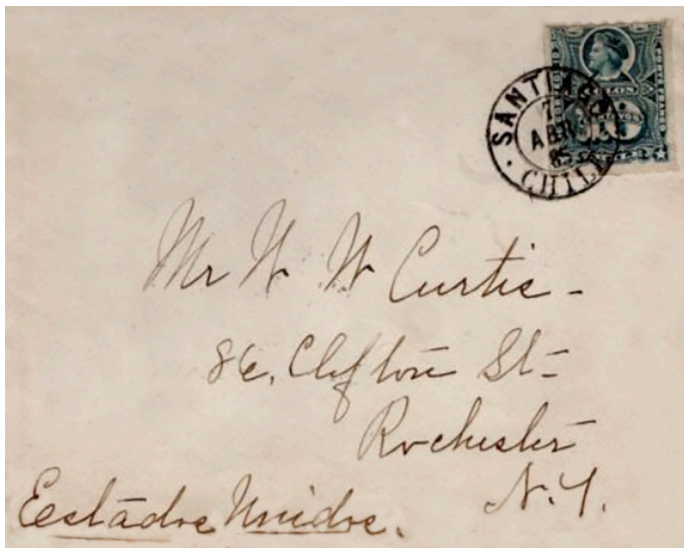 COLON
SANTIAGO
ABR
85
CHILE
Mr W W Curtis -
86, Clifton St-
Rochester
N.Y.
Eestados Unidos.